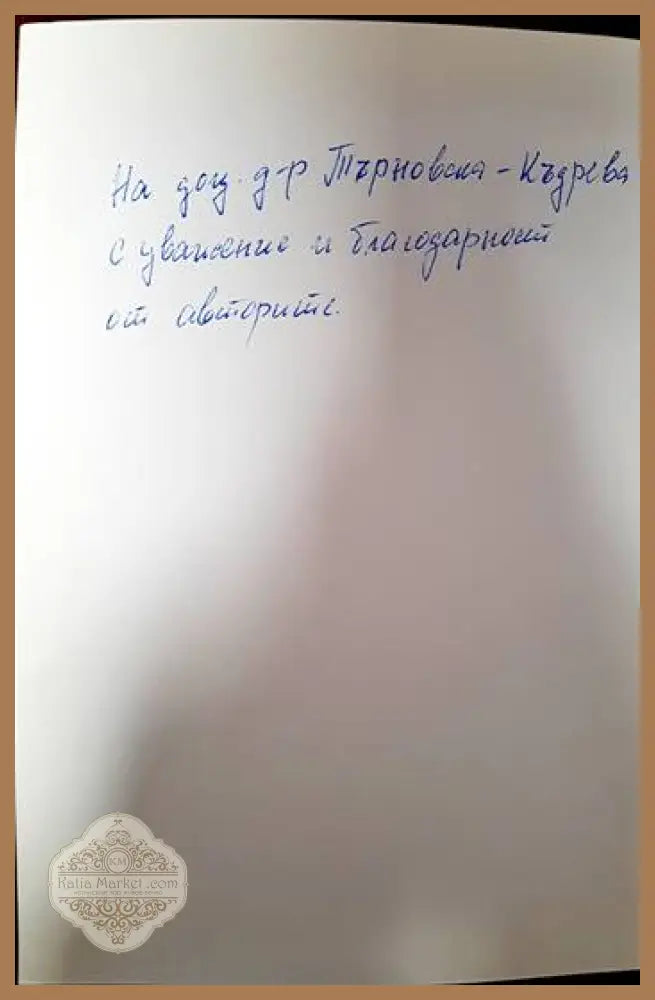 На доц. д-р Търновска - Къдрева
с уважение и благодарност
от авторите.
KM
Katia Market .com